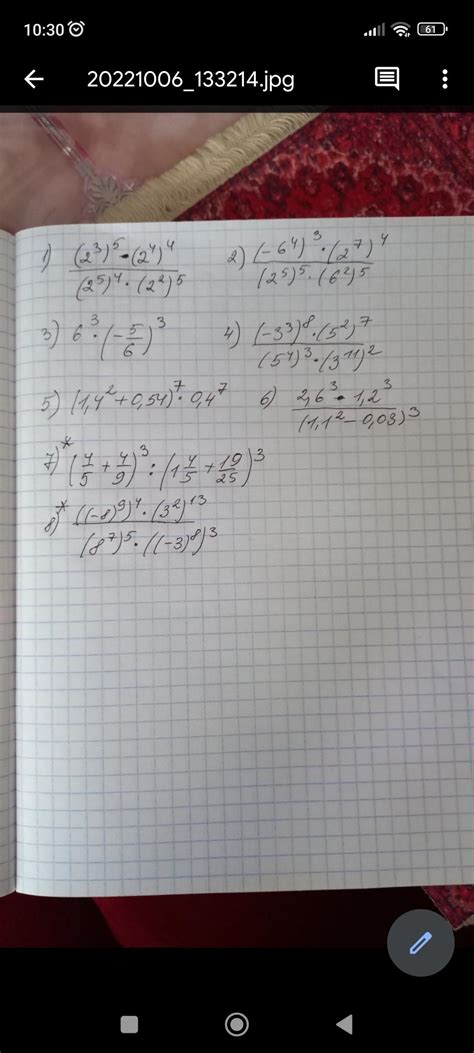 10:30 61
20221006_133214.jpg
1) ((2^3)^5 · (2^4)^4) / ((2^5)^4 · (2^2)^5) 2) ((-6^4)^3 · (2^7)^4) / ((2^5)^5 · (6^2)^5)
3) 6^3 · (-5/6)^3 4) ((-3^3)^8 · (5^2)^7) / ((5^4)^3 · (3^11)^2)
5) (1,4^2 + 0,54)^7 · 0,4^7 6) (2,6^3 · 1,2^3) / (1,1^2 - 0,03)^3
7)* (4/5 + 4/9)^3 : (1 4/5 + 19/25)^3
8)* (((-8)^9)^4 · (3^2)^13) / ((8^7)^5 · ((-3)^8)^3)